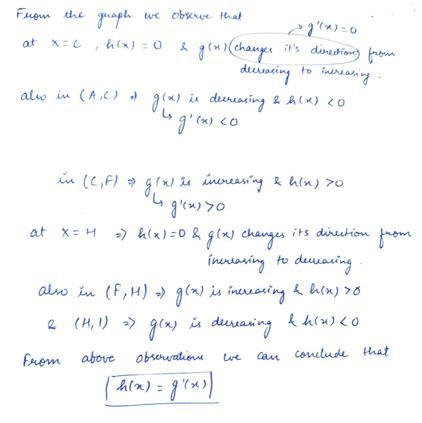 From the graph we observe that
→ g'(x) = 0
at x = C , h(x) = 0 & g(x) changes it's direction from
decreasing to increasing.
also in (A,C) ⇒ g(x) is decreasing & h(x) < 0
↳ g'(x) < 0
in (C,F) ⇒ g(x) is increasing & h(x) > 0
↳ g'(x) > 0
at x = H ⇒ h(x) = 0 & g(x) changes its direction from
increasing to decreasing.
also in (F,H) ⇒ g(x) is increasing & h(x) > 0
& (H,I) ⇒ g(x) is decreasing & h(x) < 0
From above observations we can conclude that
h(x) = g'(x)